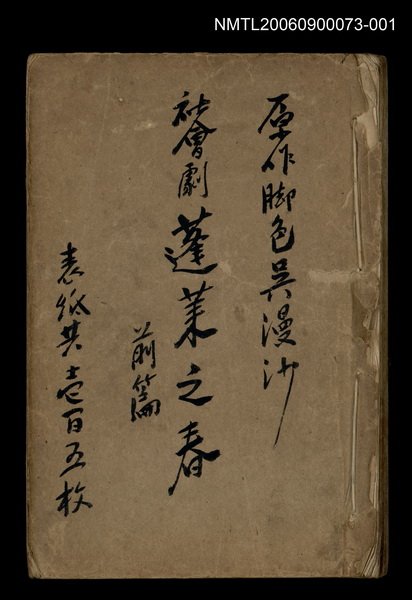 NMTL20060900073-001
原作脚色吳漫沙
社會劇蓬莱之春
前篇
表紙共壱百五枚